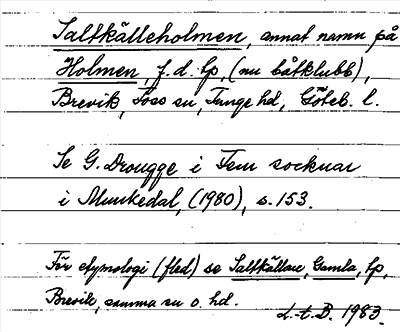 Saltkälleholmen, annat namn på
Holmen, f.d. lp, (nu båtklubb),
Brevik, Foss sn, Tunge hd, Göteb. l.
Se G. Drougge i Fem socknar
i Munkedal, (1980), s. 153.
För etymologi (fled) se Saltkällan, Gamla, lp,
Brevik, samma sn o. hd.
L.t.B. 1983